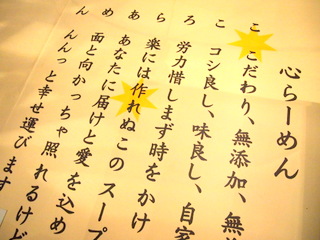 心らーめん
こ こだわり、無添加、無
こ コシ良し、味良し、自家
ろ 労力惜しまず時をかけ
ら 楽には作れぬこのスープ
あ あなたに届けと愛を込め
め 面と向かっちゃ照れるけど
ん んんっと幸せ運びます